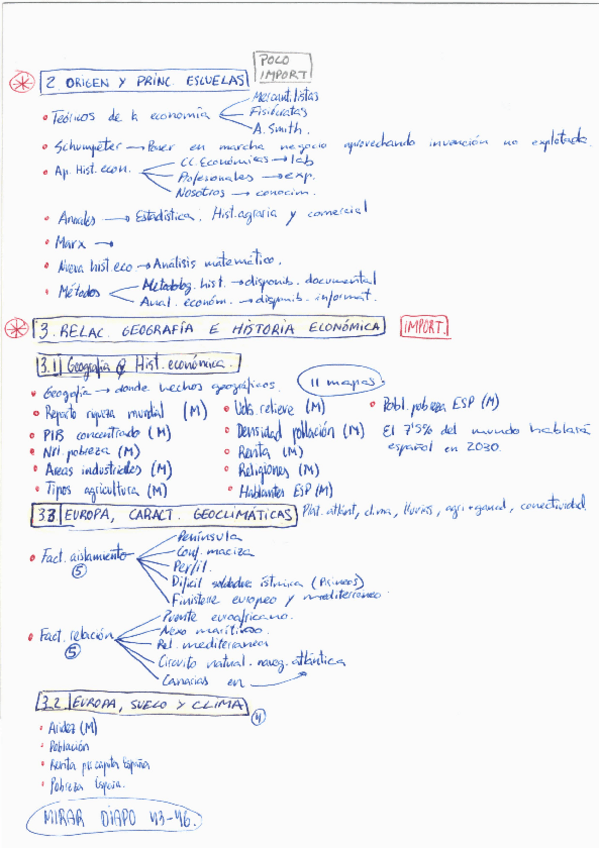 POCO
IMPORT
2. ORIGEN Y PRINC. ESCUELAS
• Teóricos de la economía
Mercantilistas
Fisiócratas
A. Smith.
• Schumpeter → Poner en marcha negocio aprovechando invención no explotada.
• Ap. Hist. econ.
CC. Económicas → lab
Profesionales → exp.
Nosotros → conocim.
• Annales → Estadística. Hist. agraria y comercial
• Marx →
• Nueva hist. eco → Análisis matemático.
• Métodos
hist. → disponib. documental
Anal. económ. → disponib. informát.
3. RELAC. GEOGRAFÍA E HISTORIA ECONÓMICA
IMPORT.
3.1 Geografía Hist. económica.
• Geografía → donde hechos geográficos.
11 mapas.
• Reparto riqueza mundial (M)
• PIB concentrado (M)
• Nvl. pobreza (M)
• Areas industriales (M)
• Tipos agricultura (M)
• Uds. relieve (M)
• Densidad población (M)
• Renta (M)
• Religiones (M)
• Hablantes ESP (M)
• Pobl. pobreza ESP (M)
El 7'5% del mundo hablará
español en 2030.
3.3 EUROPA, CARACT. GEOCLIMÁTICAS
Plat. atlánt, clima, lluvias, agri + ganad, conectividad
• Fact. aislamiento
5
Península
Conf. maciza
Perfil.
Difícil soldadura ístmica (Pirineos)
Finisterre europeo y mediterraneo.
• Fact. relación
5
Puente euroafricano.
Nexo marítimo.
Rel. mediterranea
Circuito natural. naveg. atlántica
Canarias en
3.2 EUROPA, SUELO Y CLIMA
4
• Aridez (M)
• Población
• Renta per capita España
• Pobreza España.
MIRAR DIAPO 43-46.